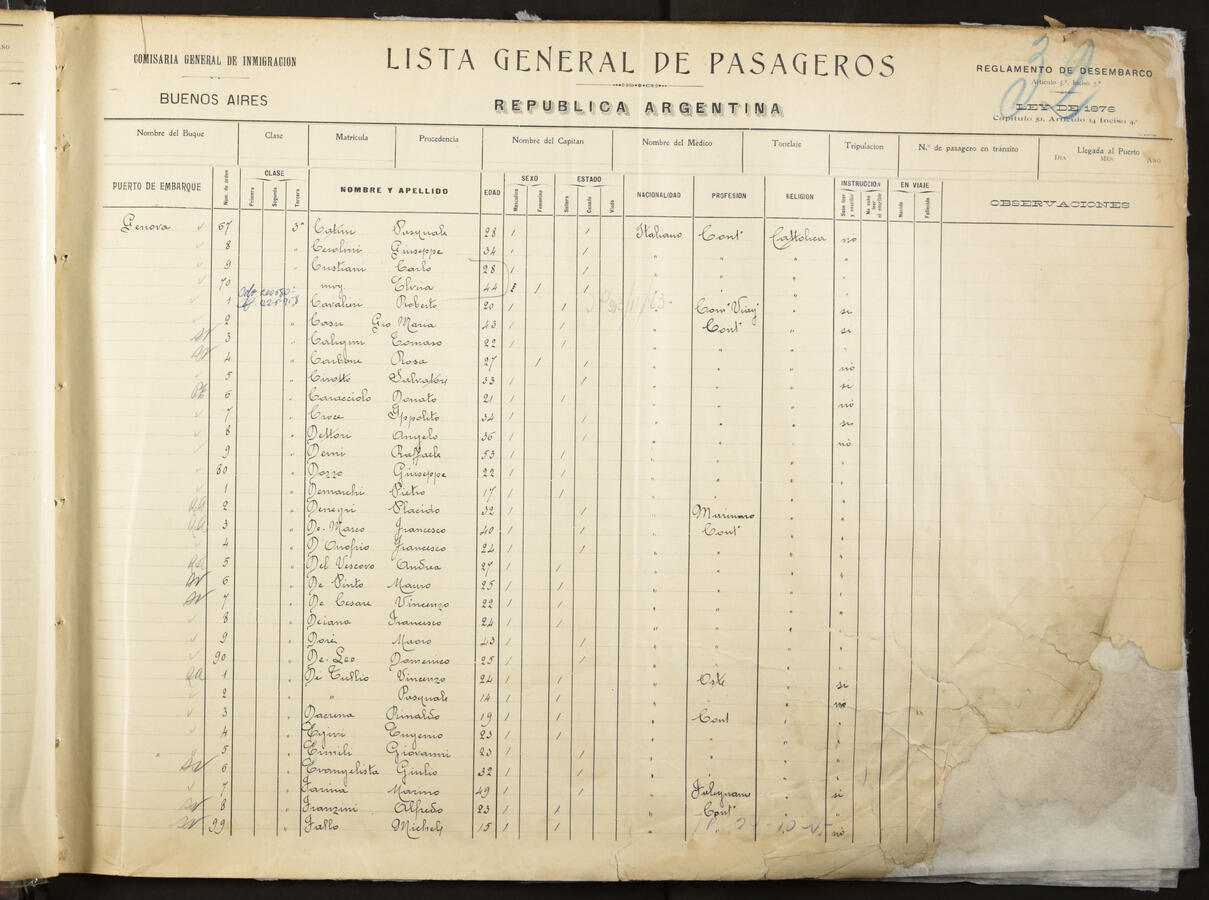 COMISARIA GENERAL DE INMIGRACION
BUENOS AIRES
LISTA GENERAL DE PASAGEROS
REPUBLICA ARGENTINA
REGLAMENTO DE DESEMBARCO
Artículo 5º. Inciso 5º
LEY DE 1876
Capítulo 51, Artículo 14 Inciso 4º
32
Nombre del Buque Clase Matrícula Procedencia Nombre del Capitan Nombre del Médico Tonelaje Tripulacion N.º de pasagero en tránsito Llegada al Puerto
DIA MES AÑO
PUERTO DE EMBARQUE Num. de orden CLASE Primera Segunda Tercera NOMBRE Y APELLIDO EDAD SEXO Masculino Femenino ESTADO Soltero Casado Viudo NACIONALIDAD PROFESION RELIGION INSTRUCCION Sabe leer y escribir No sabe leer ni escribir EN VIAJE Nacido Fallecido OBSERVACIONES
Genova 67 3ª Catini Pasquale 28 / / Italiano Cont Cattolica no
8 " Cerolini Giuseppe 34 / / " " " "
9 " Cristiani Carlo 28 / / " " " "
70 " mog. Elvira 44 / / " " " "
1 " Cavalieri Roberto 20 / / " Com Viag " si
2 " Casu Gio Maria 43 / / " Cont " si
3 " Calegini Tomaso 22 / / " " " "
4 " Carbone Rosa 27 / / " " " no
5 " Cirotto Salvatore 33 / / " " " si
6 " Caracciolo Donato 21 / / " " " no
7 " Croce Ippolito 34 / / " " " si
8 " Dettori Angelo 36 / / " " " no
9 " Demi Raffaele 53 / / " " " "
80 " Dozzo Giuseppe 22 / / " " " "
1 " Demarchi Pietro 17 / / " " " "
2 " Denegri Placido 32 / / " Marinaro " "
3 " De Marco Francesco 40 / / " Cont " "
4 " D'Onofrio Francesco 24 / / " " " "
5 " Del Vescovo Andrea 27 / / " " " "
6 " De Pinto Mauro 25 / / " " " "
7 " De Cesare Vincenzo 22 / / " " " "
8 " Deiana Francesco 24 / / " " " "
9 " Dore Mauro 43 / / " " " "
90 " De Leo Domenico 25 / / " " " "
1 " Di Tullio Vincenzo 24 / / " Oste " si
2 " " Pasquale 14 / / " " " no
3 " Dacrena Rinaldo 19 / / " Cont " "
4 " Egivi Eugenio 23 / / " " " "
5 " Ermili Giovanni 23 / / " " " "
6 " Evangelista Giulio 32 / / " " " "
7 " Farina Marino 49 / / " Falegname " si
8 " Franzini Alfredo 23 / / " Cont " "
99 " Fallo Michele 15 / / " " " no